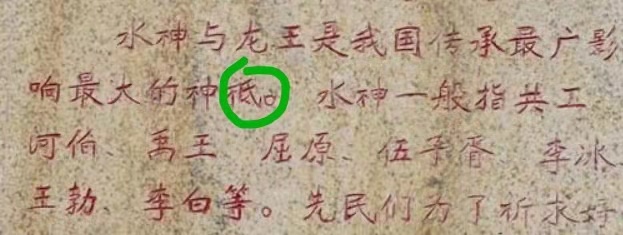 水神与龙王是我国传承最广影
响最大的神祗。水神一般指共工
河伯、禹王 屈原、伍子胥 李冰
王勃、李白等。先民们为了祈求好